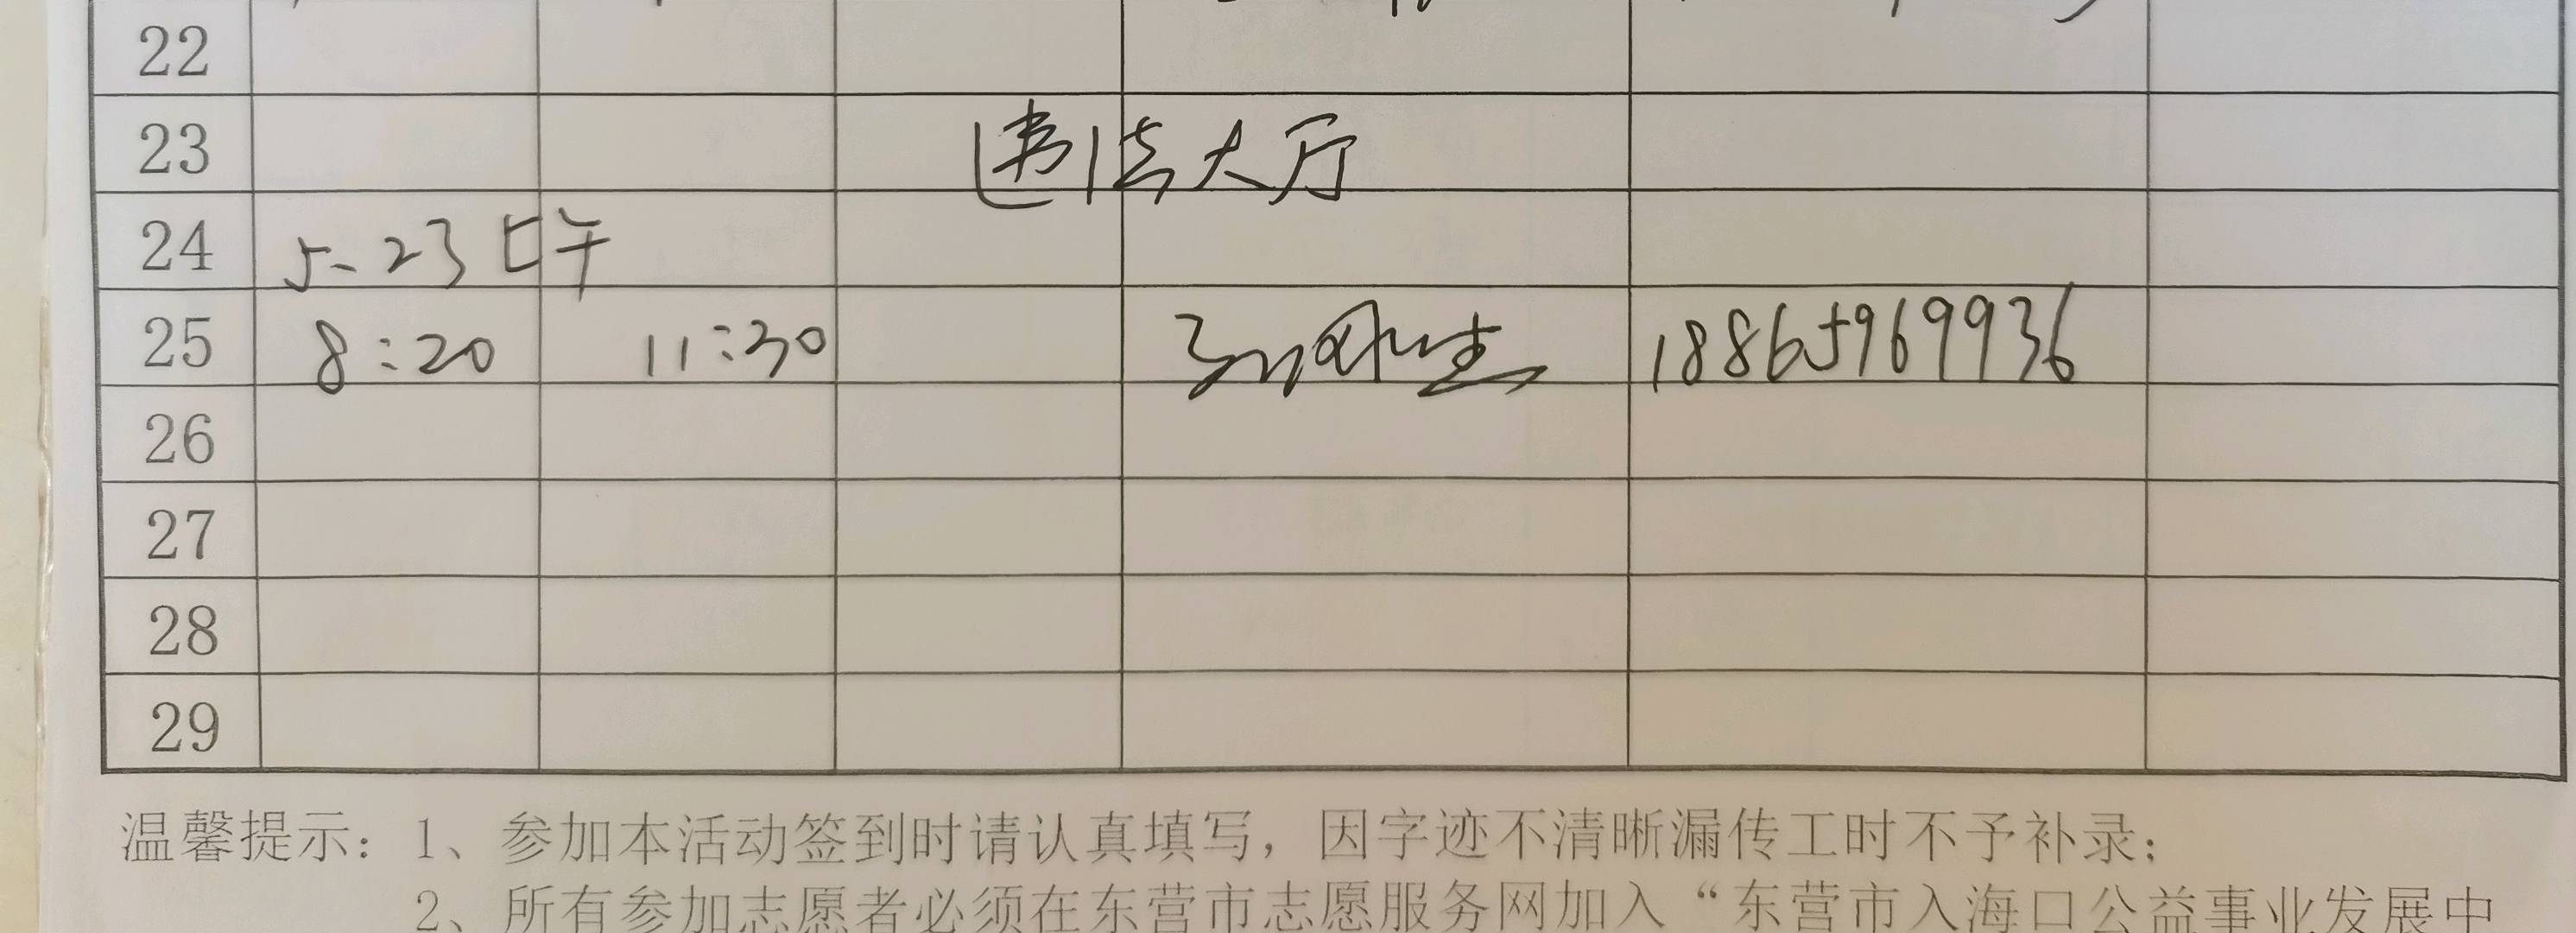 22
23 违法大厅
24 5.23上午
25 8:20 11:30 18865969936
26
27
28
29
温馨提示：1、参加本活动签到时请认真填写，因字迹不清晰漏传工时不予补录；
2、所有参加志愿者必须在东营市志愿服务网加入“东营市入海口公益事业发展中